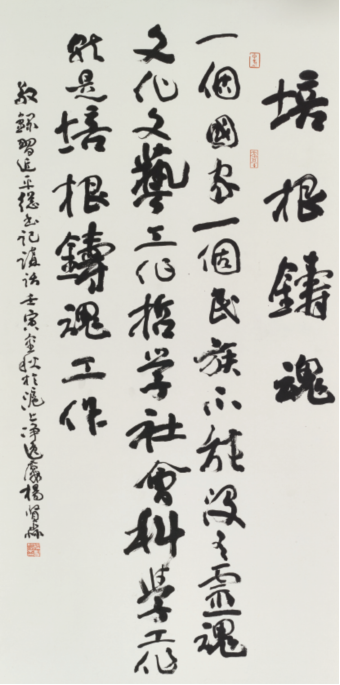 培根鑄魂
一個國家一個民族不能没有靈魂
文化文藝工作哲学社會科學工作
就是培根鑄魂工作
敬錄習近平總书记講話壬寅金秋於滬上净逸齋楊